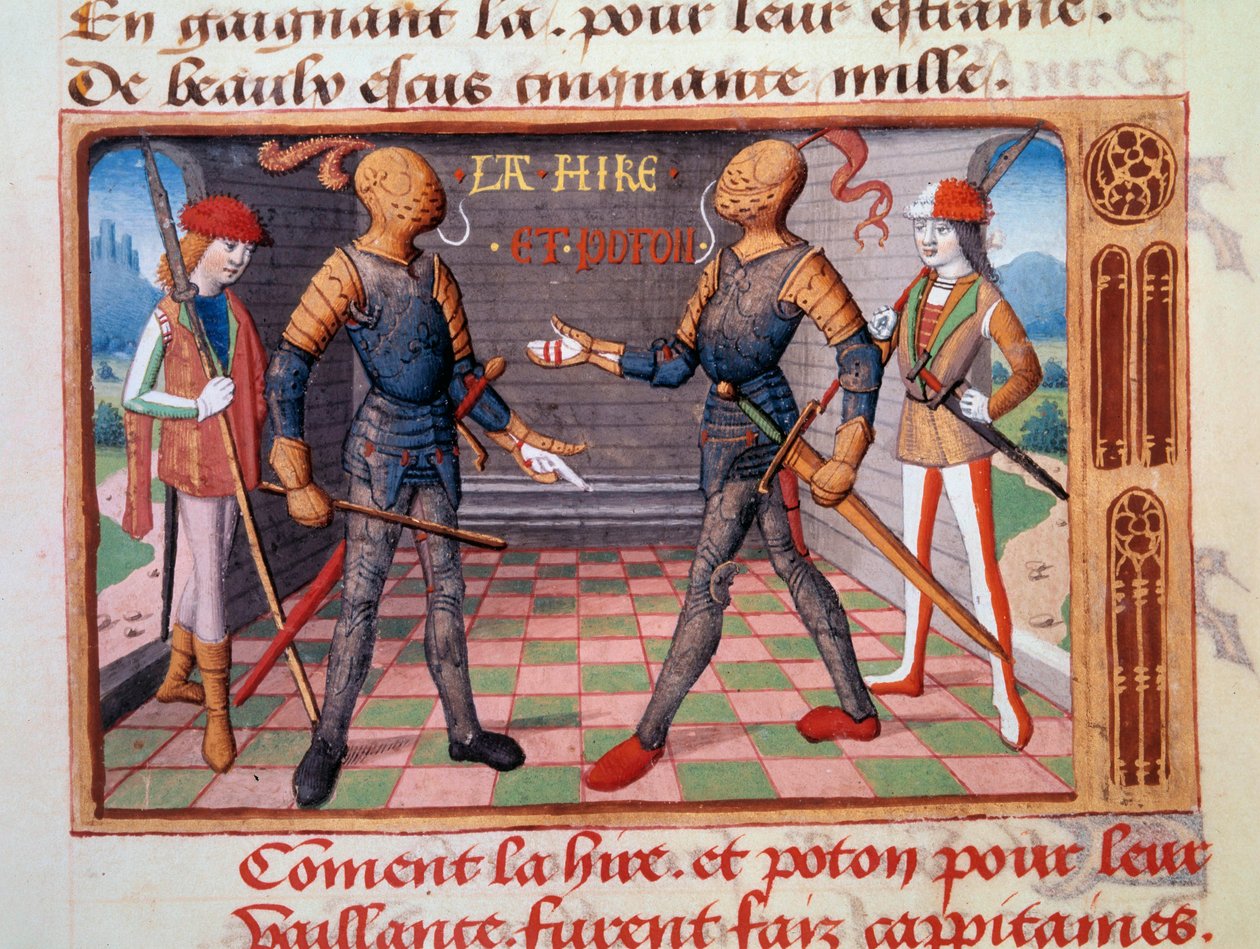 En gaignant la. pour leur estraine.
De beaulx escus cinquante mille.
·LA·HIRE·
·ET·POTON·
Cõment la hire. et poton pour leur
vaillante. furent faiz cappitaines.